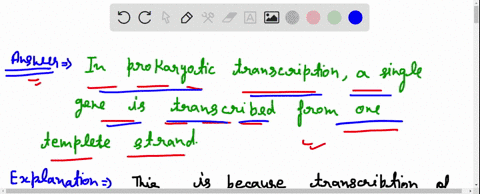 Answer => In prokaryotic transcription, a single
gene is transcribed from one
templete strand.
Explanation => This is because transcription of